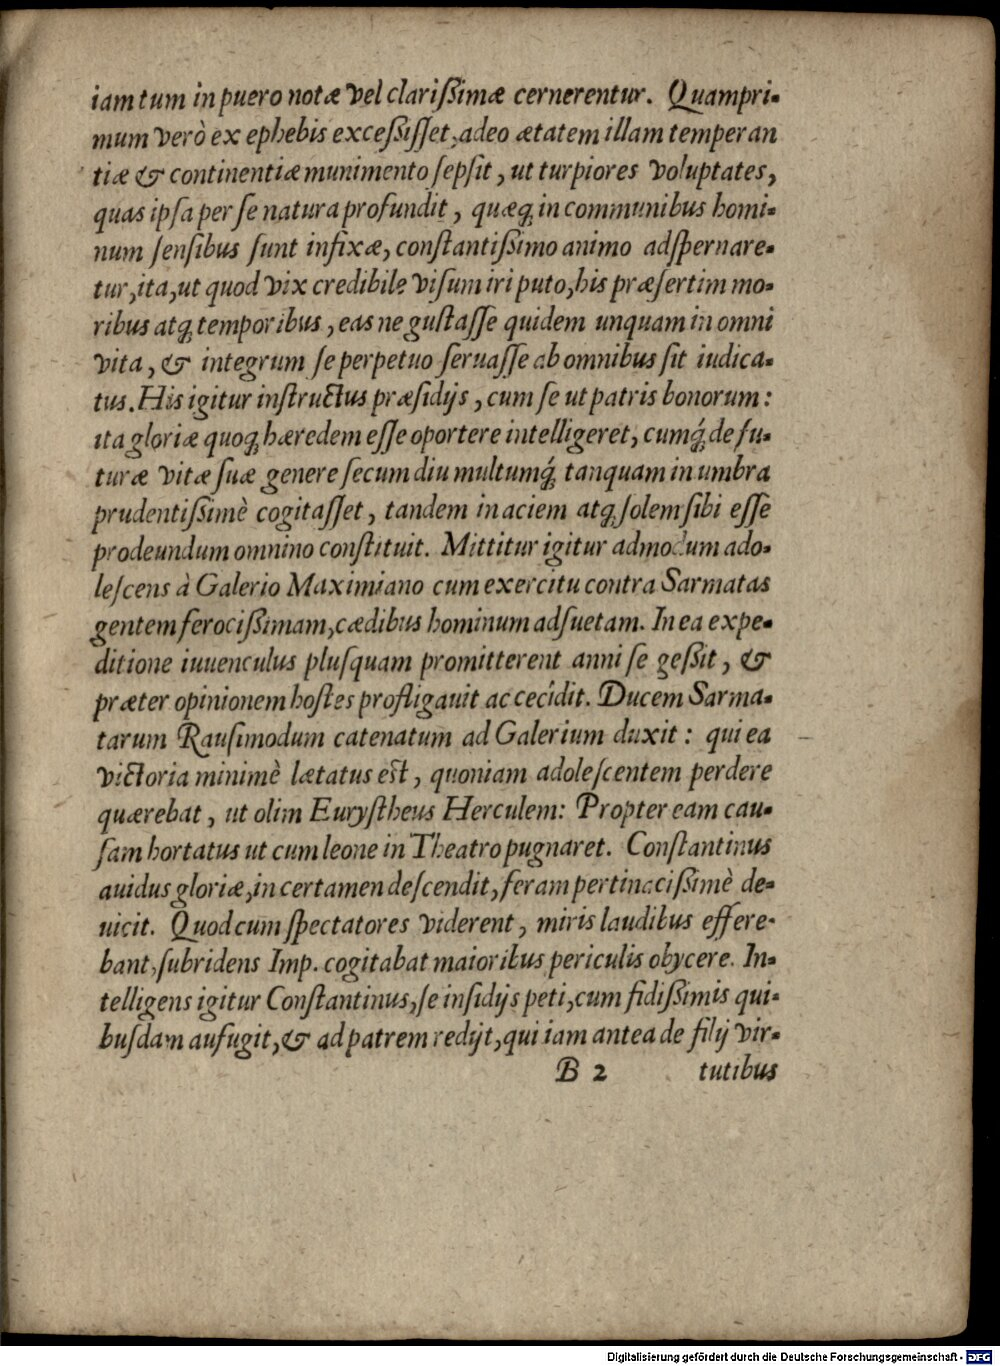 iam tum in puero notæ vel clarißimæ cernerentur. Quampri-
mum verò ex ephebis exceßiſſet, adeo ætatem illam temperan
tiæ & continentiæ munimento ſepſit, ut turpiores voluptates,
quas ipſa per ſe natura profundit, quæq́; in communibus homi-
num ſenſibus ſunt infixæ, conſtantißimo animo adſpernare-
tur, ita, ut quod vix credibile viſum iri puto, his præſertim mo-
ribus atq; temporibus, eas ne guſtaſſe quidem unquam in omni
vita, & integrum ſe perpetuo ſeruaſſe ab omnibus ſit iudica-
tus. His igitur inſtructus præſidijs, cum ſe ut patris bonorum:
ita gloriæ quoq; hæredem eſſe oportere intelligeret, cumq́; de fu-
turæ vitæ ſuæ genere ſecum diu multumq́; tanquam in umbra
prudentißimè cogitaſſet, tandem in aciem atq; ſolem ſibi eſſe
prodeundum omnino conſtituit. Mittitur igitur admodum ado-
leſcens à Galerio Maximiano cum exercitu contra Sarmatas
gentem ferocißimam, cædibus hominum adſuetam. In ea expe-
ditione iuuenculus pluſquam promitterent anni ſe geßit, &
præter opinionem hoſtes profligauit ac cecîdit. Ducem Sarma-
tarum Rauſimodum catenatum ad Galerium duxit: qui ea
victoria minimè lætatus eſt, quoniam adoleſcentem perdere
quærebat, ut olim Euryſtheus Herculem: Propter eam cau-
ſam hortatus ut cum leone in Theatro pugnaret. Conſtantinus
auidus gloriæ, in certamen deſcendit, feram pertinacißimè de-
uicit. Quod cum ſpectatores viderent, miris laudibus effere-
bant, ſubridens Imp. cogitabat maioribus periculis obycere. In-
telligens igitur Conſtantinus, ſe inſidijs peti, cum fidißimis qui-
buſdam aufugit, & ad patrem redijt, qui iam antea de filij vir-
B 2 tutibus
Digitalisierung gefördert durch die Deutsche Forschungsgemeinschaft - DFG